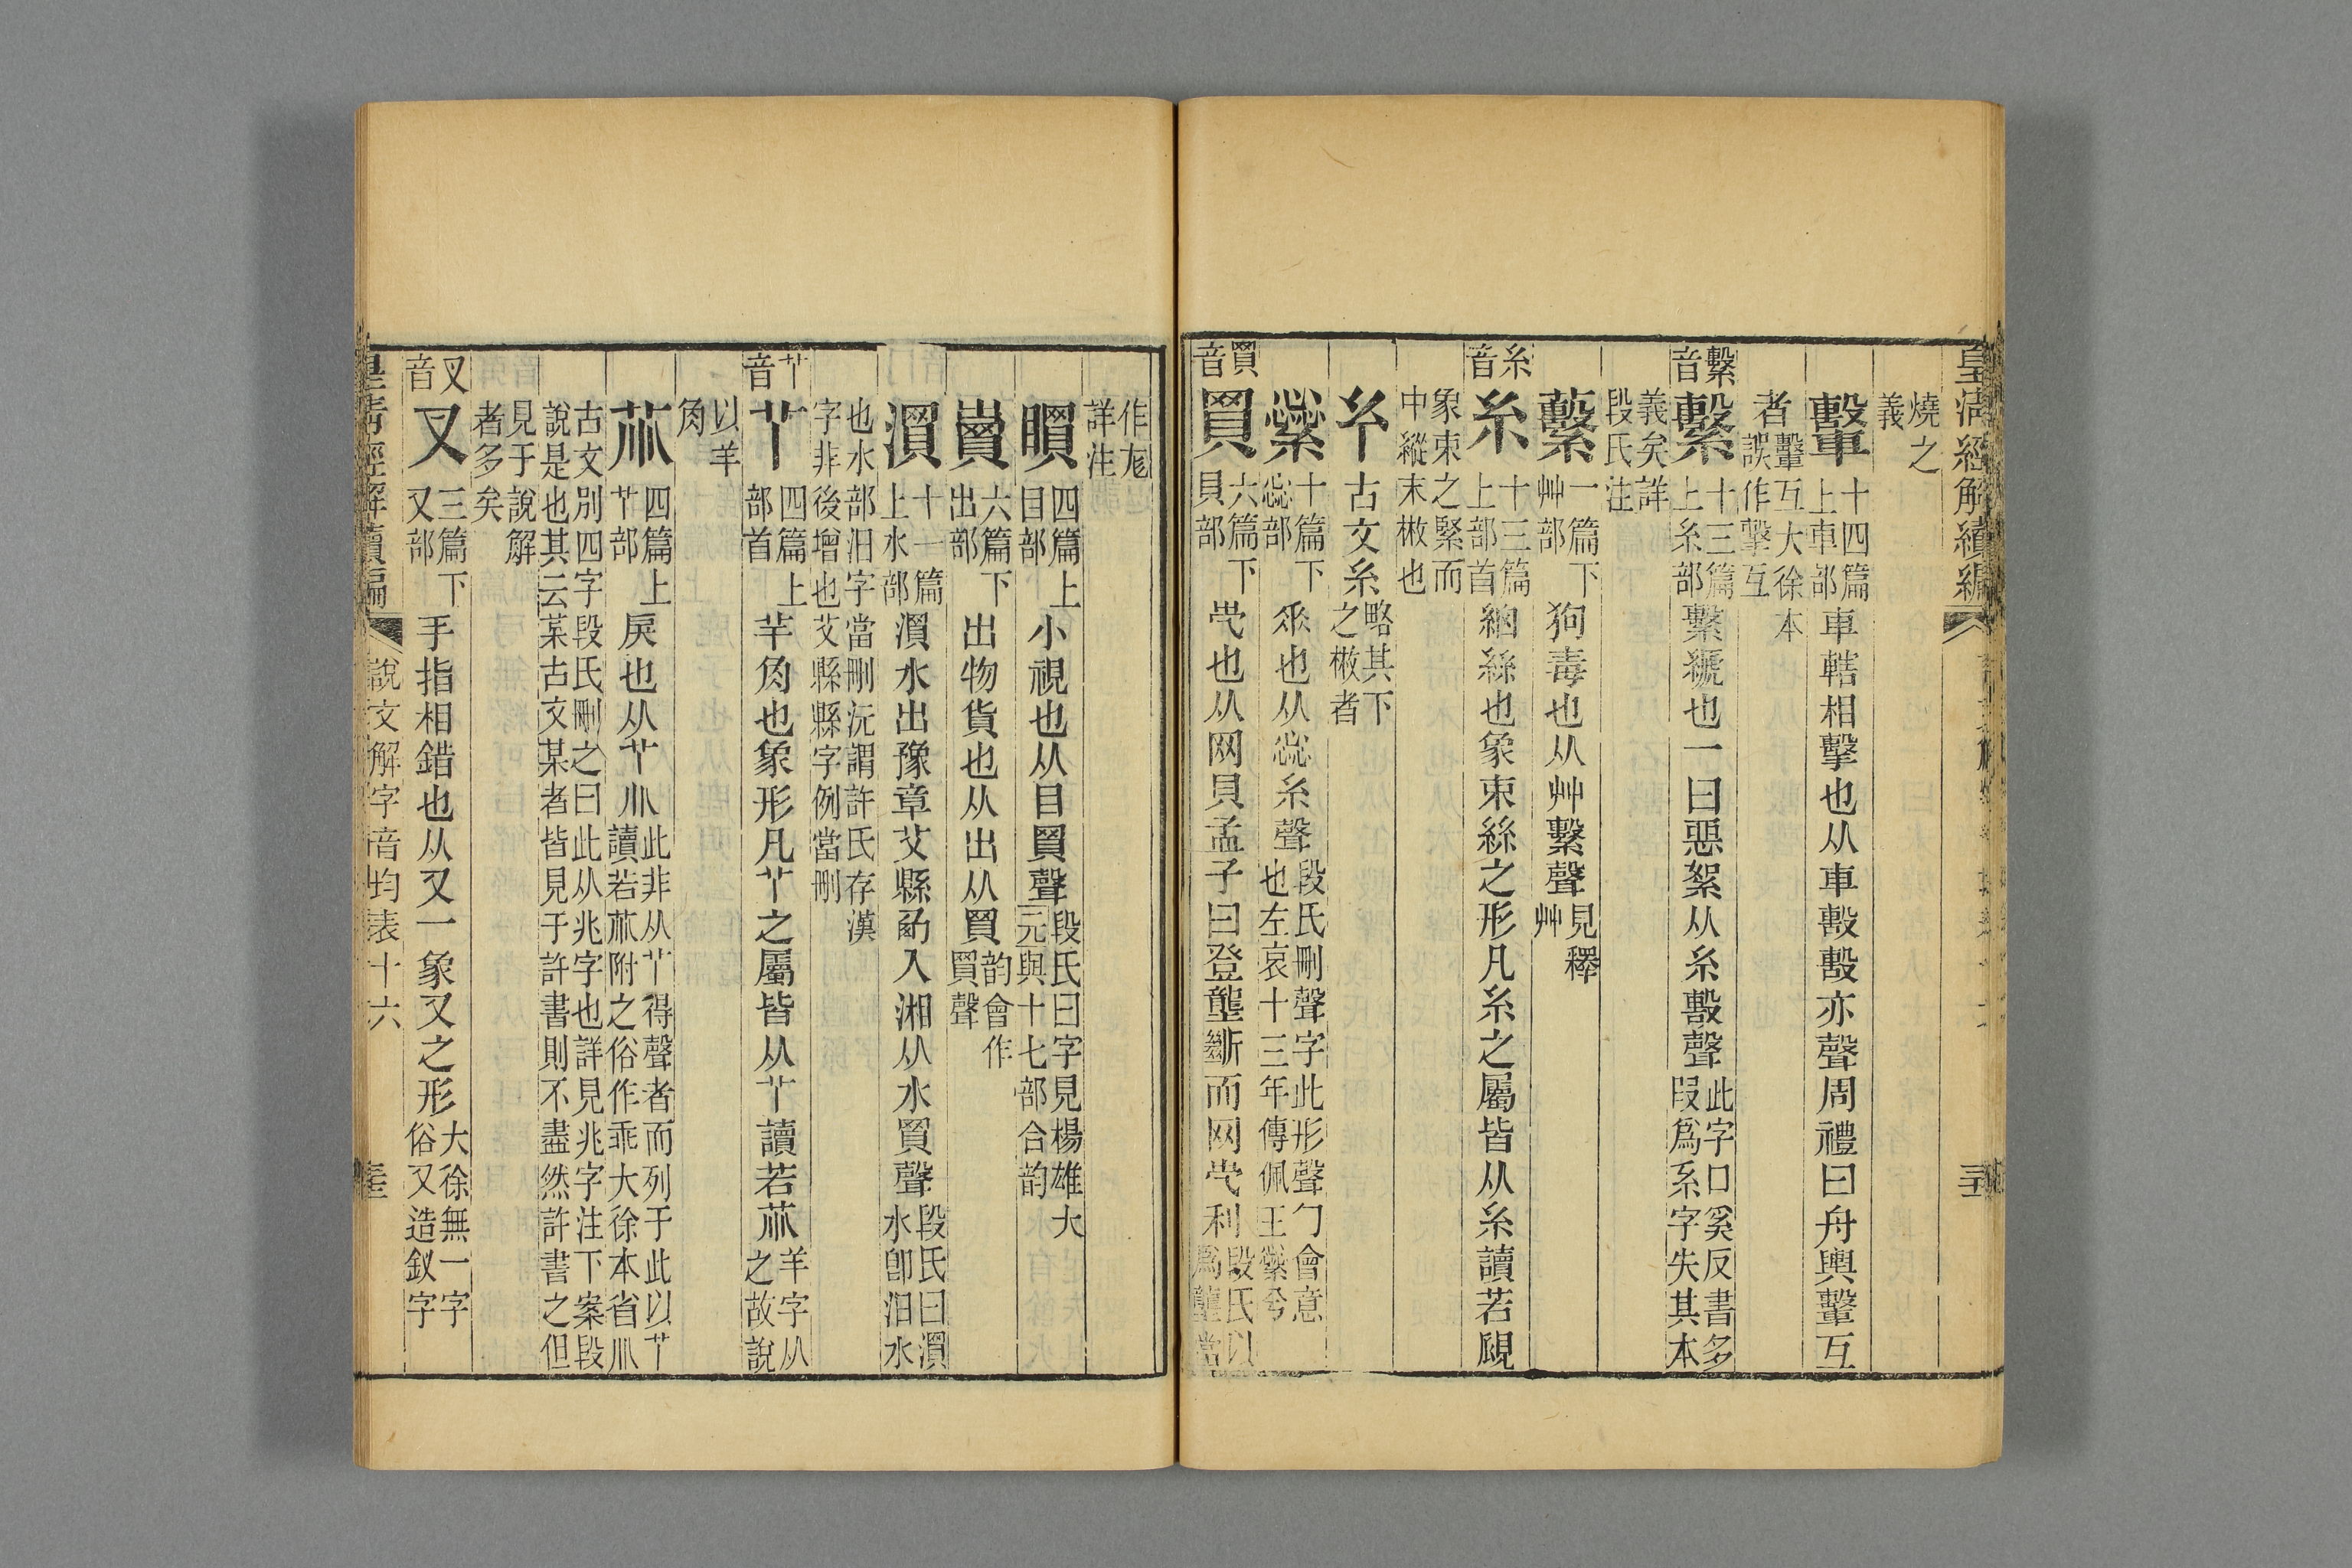 皇清經解續編
燒之義
轚 十四篇上車部 車轄相擊也从車毄毄亦聲周禮曰舟輿轚互
者轚互大徐本誤作擊互
繫音 繫 十三篇上糸部 繫𦃇也一曰惡絮从糸毄聲 此字口奚反書多叚爲系字失其本
義矣詳段氏注
蘻 一篇下艸部 狗毒也从艸繫聲 見釋艸
糸音 糸 十三篇上部首 細絲也象束絲之形凡糸之屬皆从糸讀若覛
象束之緊而中縱末㪔也
𢆯 古文糸 略其下之㪔者
繠 十篇下惢部 𠂹也从惢糸聲 段氏刪聲字此形聲勹會意也左哀十三年傳佩王繠兮
買音 買 六篇下貝部 𡴘也从网貝孟子曰登壟斷而网𡴘利 段氏以爲壟當
作尨詳注
瞤 四篇上目部 小視也从目買聲 段氏曰字見楊雄大元與十七部合韵
賣 六篇下出部 出物貨也从出从買 韵會作買聲
潣 十一篇上水部 潣水出豫章艾縣西入湘从水買聲 段氏曰潣水卽汨水
也水部汨字當刪沅謂許氏存漢字非後增也艾縣縣字例當刪
𦫳音 𦫳 四篇上部首 羊角也象形凡𦫳之屬皆从𦫳讀若𠁥 羊字从之故說
以羊角
𠁥 四篇上𦫳部 戾也从𦫳𠔁 此非从𦫳得聲者而列于此以𦫳讀若𠁥附之俗作乖大徐本省𠔁
古文別四字段氏刪之曰此从兆字也詳見兆字注下案段說是也其云某古文某者皆見于許書則不盡然許書之但
見于說解者多矣
叉音 叉 三篇下又部 手指相錯也从又一象叉之形 大徐無一字俗又造釵字
皇清經解續編 說文解字音均表十六